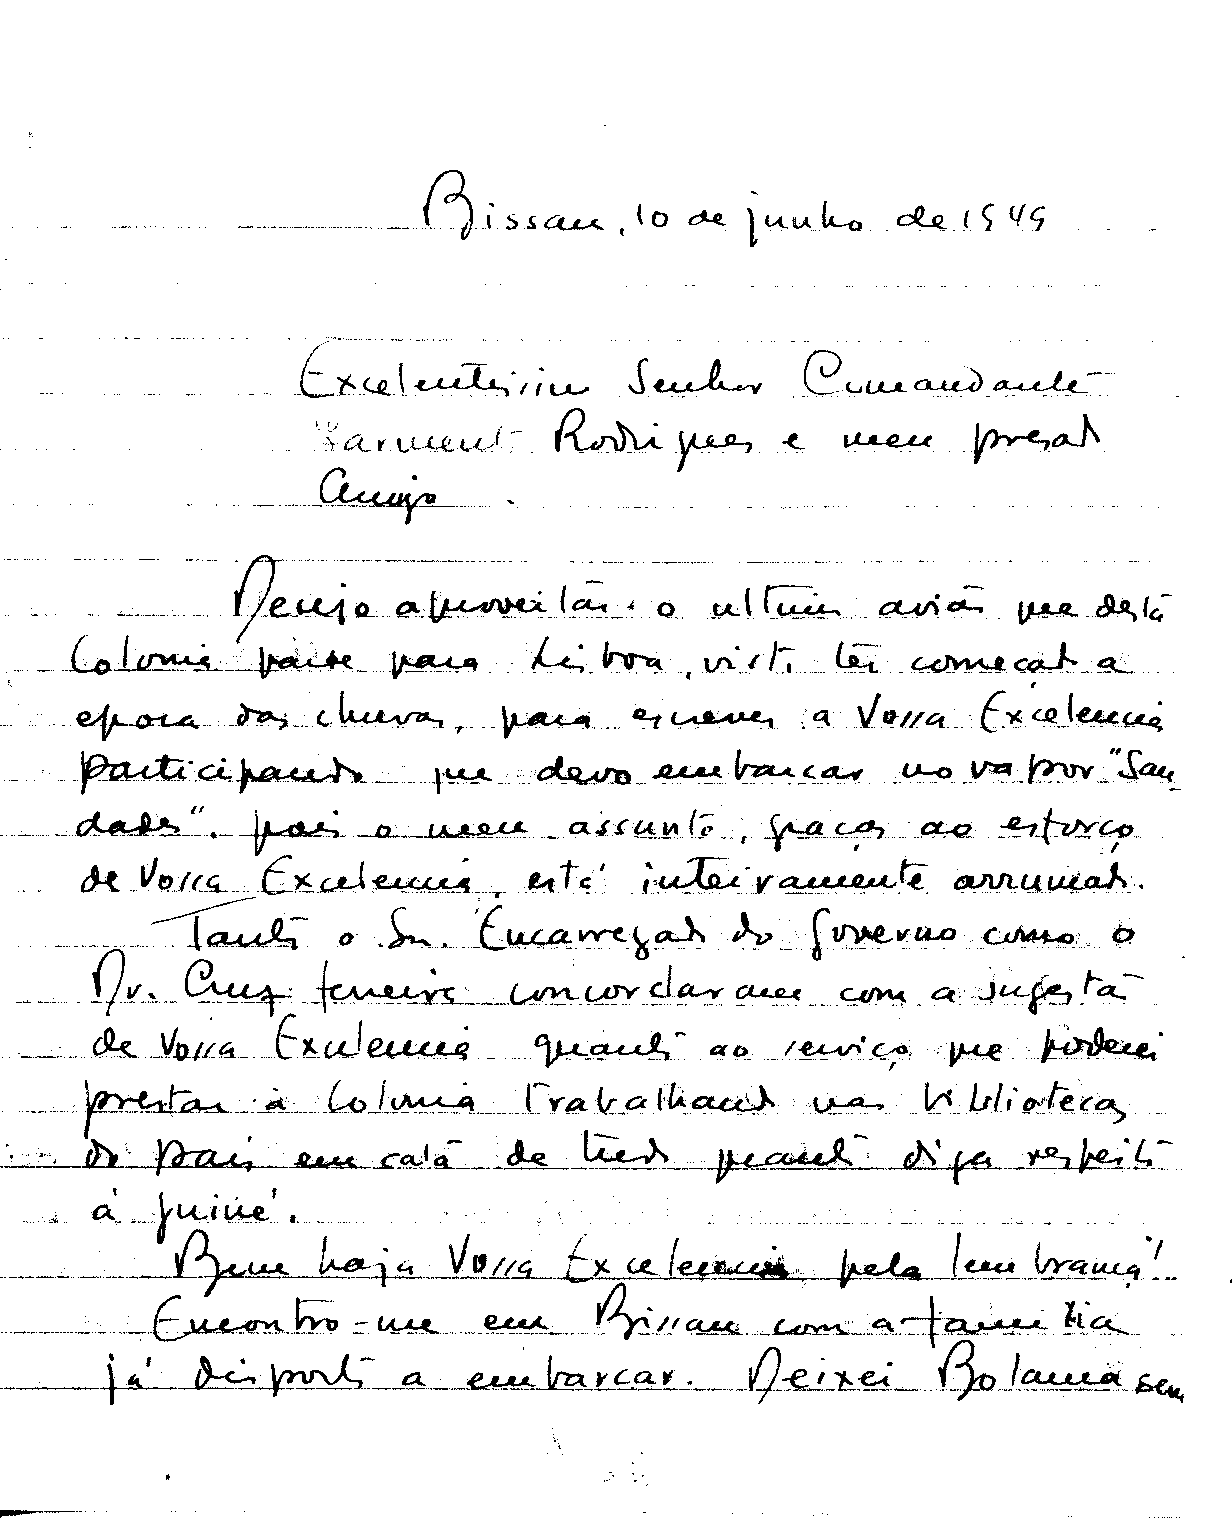 Bissau, 10 de junho de 1949
Excelentissimo Senhor Comandante
Sarmento Rodrigues e meu presado
Amigo.
Desejo aproveitar o ultimo avião que desta
Colonia parte para Lisboa, visto ter começado a
epoca das chuvas, para escrever a Vossa Excelencia
participando que devo embarcar no vapor "Sau-
dades". pois o meu assunto, graças ao esforço
de Vossa Excelencia, está inteiramente arrumado.
Tanto o Sr. Encarregado do Governo como o
Dr. Cruz Ferreira concordaram com a sugestão
de Vossa Excelencia quanto ao serviço que poderei
prestar à Colonia trabalhando nas bibliotecas
do pais em cata de tudo quanto diga respeito
á Guiné.
Bem haja Vossa Excelencia pela lembrança!..
Encontro-me em Bissau com a familia
já disposto a embarcar. Deixei Bolama sem